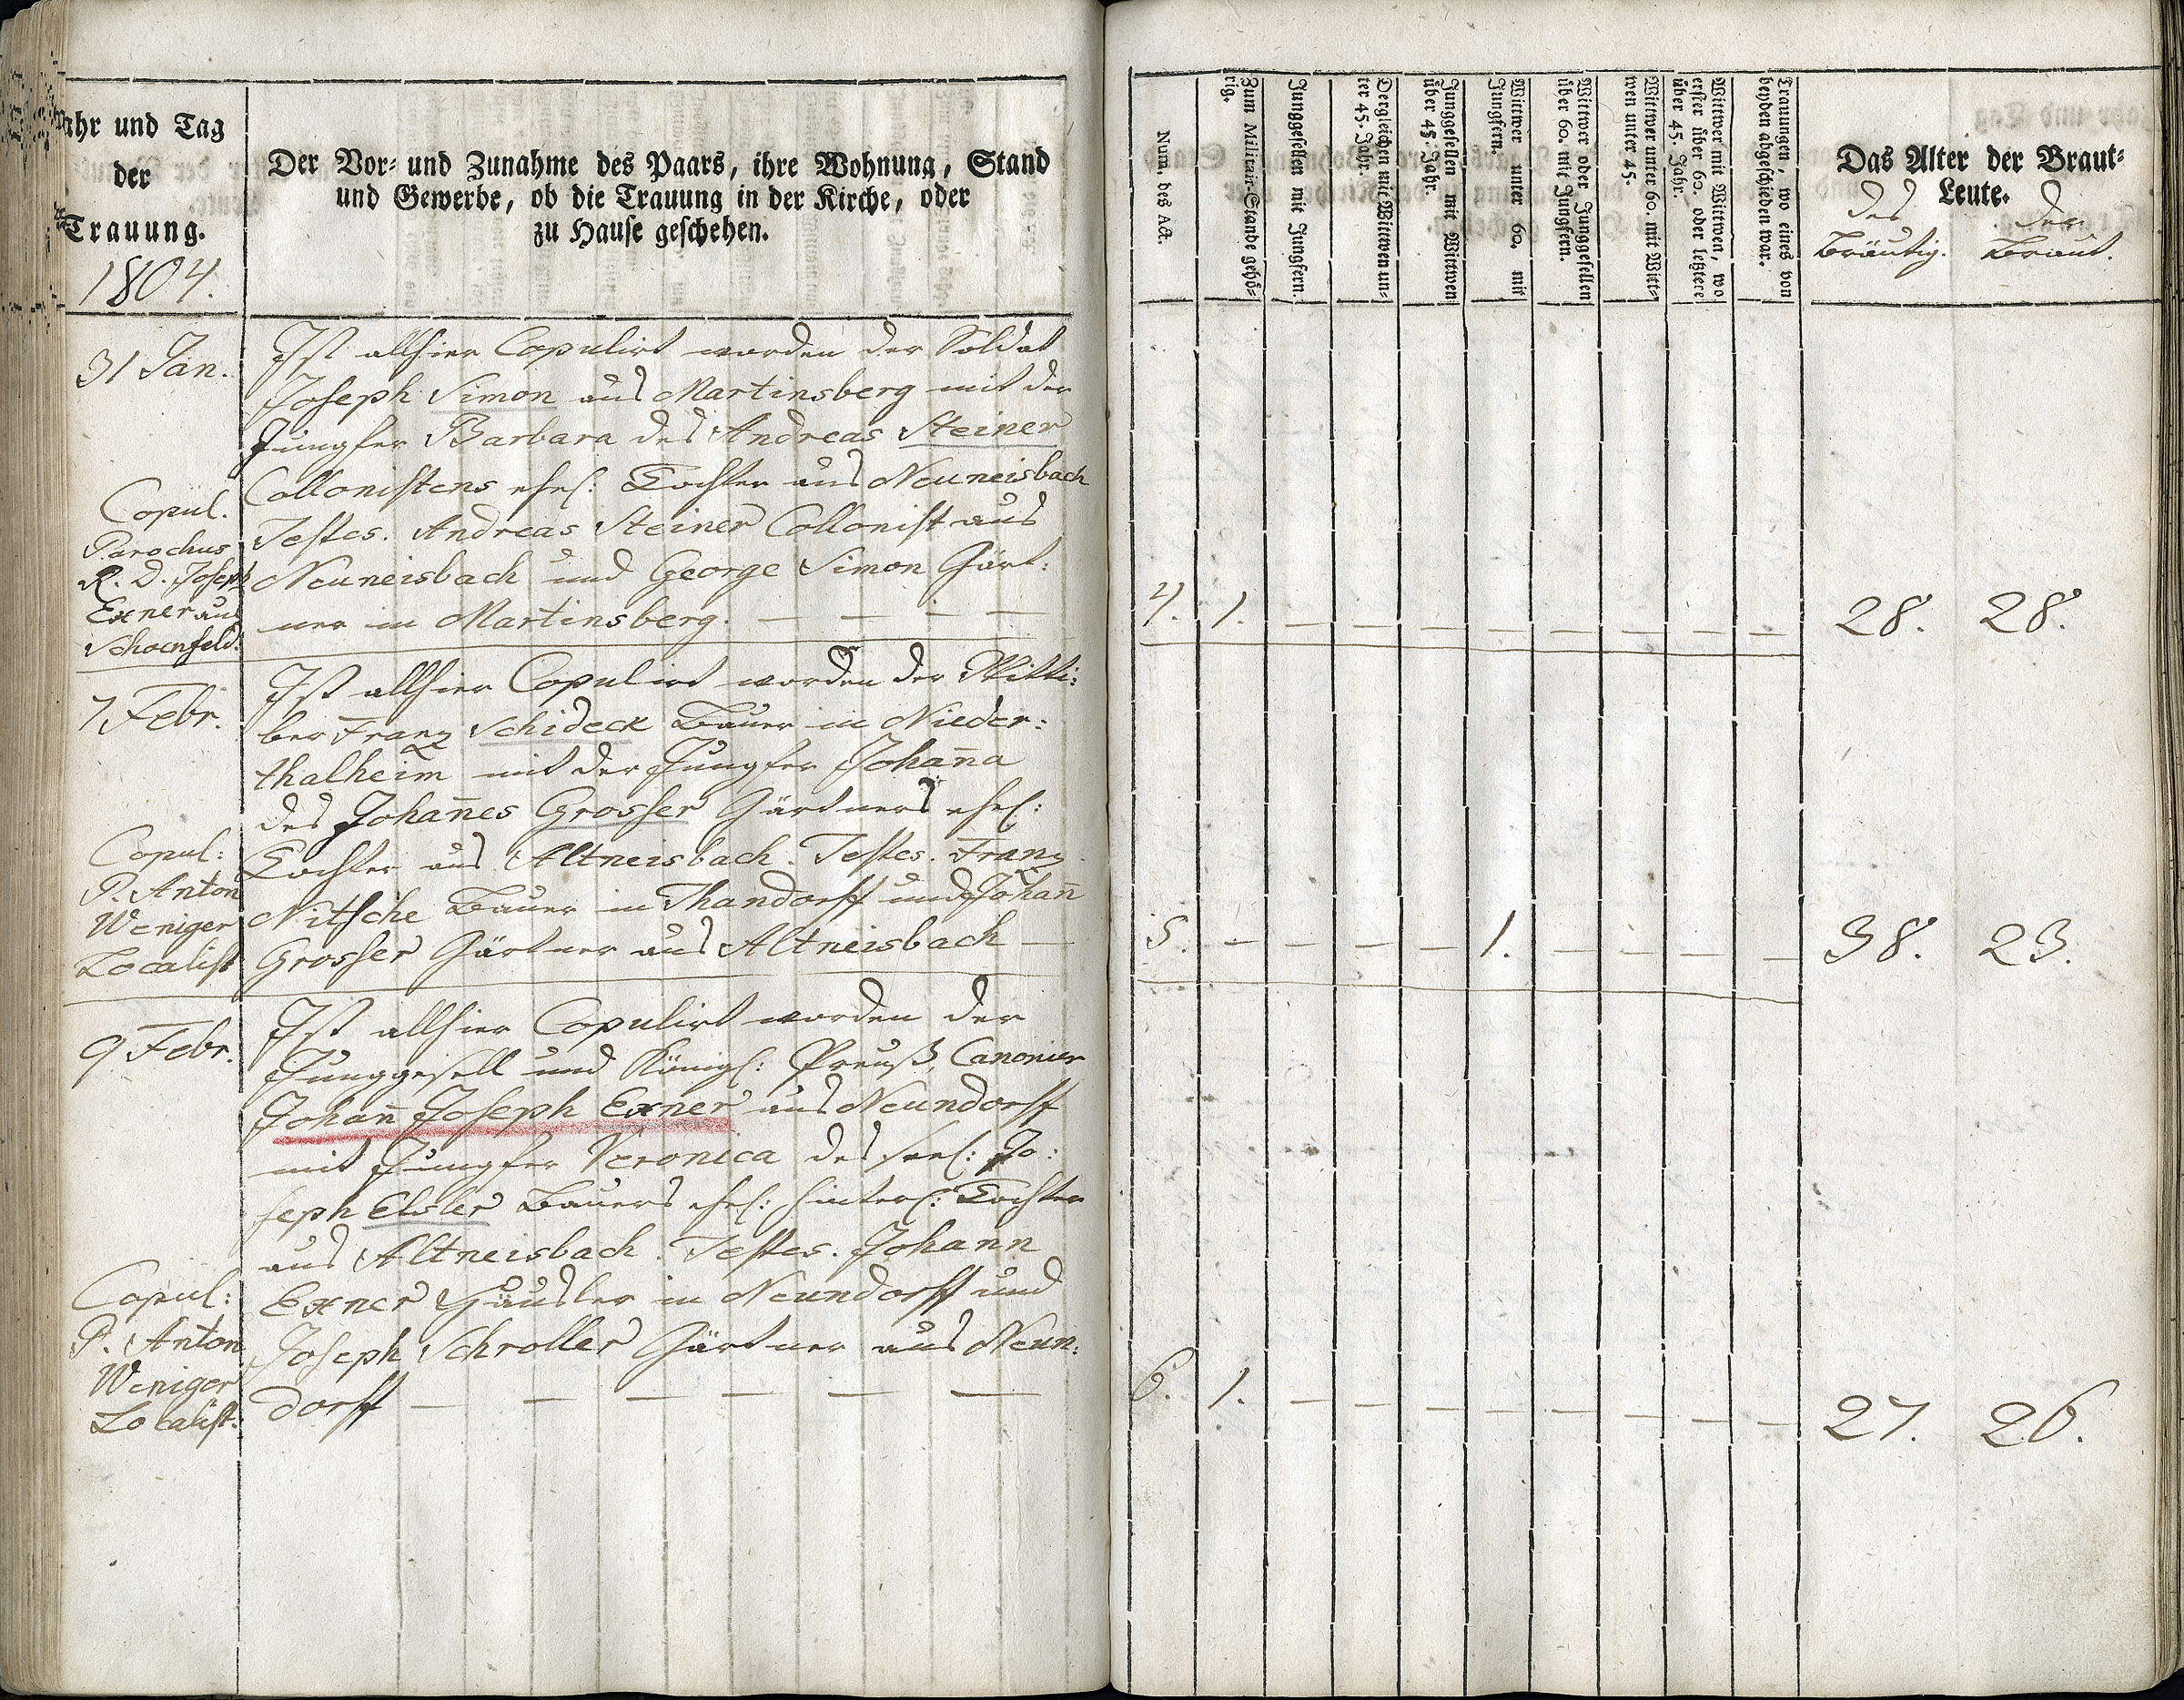 Jahr und Tag
der
Trauung.
1804.
Der Vor- und Zunahme des Paars, ihre Wohnung, Stand
und Gewerbe, ob die Trauung in der Kirche, oder
zu Hause geschehen.
31 Jan.
Ist allhier Copulirt worden der Soldat
Joseph Simon aus Martinsberg mit der
Jungfer Barbara des Andreas Steiner
Collonistens ehel: Tochter aus Neuneisbach
Testes. Andreas Steiner Collonist aus
Neuneisbach und George Simon Gärt:
ner in Martinsberg. — — — —
Copul.
Parochus
R. D. Joseph
Exner aus
Schoenfeld.
7 Febr.
Ist allhier Copulirt worden der Witti:
ber Franz Schideck Bauer in Nieder:
thalheim mit der Jungfer Johan̄a
des Johan̄es Grosser Gärtners ehel:
Tochter aus Altneisbach. Testes. Franz
Nitsche Bauer in Thandorff und Johan̄
Grosser Gärtner aus Altneisbach —
Copul:
P. Anton
Weniger
Localist
9 Febr.
Ist allhier Copulirt worden der
Junggesell und Königl: Preuß. Canonier
Johan̄ Joseph Exner aus Neundorff
mit Jungfer Veronica des seel: Jo:
seph Elsler Bauers ehel: hinterl: Tochter
aus Altneisbach. Testes. Johann
Exner Häusler in Neundorff und
Joseph Schroller Gärtner aus Neun:
dorff — — — — —
Copul:
P. Anton
Weniger
Localist:
Num. des Act.
Zum Militair-Stande gehö-
rig.
Junggesellen mit Jungfern.
Dergleichen mit Witwen un-
ter 45. Jahr.
Junggesellen mit Wittwen
über 45. Jahr.
Wittwer unter 60. mit
Jungfern.
Wittwer oder Junggesellen
über 60. mit Jungfern.
Wittwer unter 60. mit Witt-
wen unter 45.
Wittwer mit Wittwen, wo
erster über 60. oder letztere
über 45. Jahr.
Trauungen, wo eines von
beyden abgeschieden war.
Das Alter der Braut-
Leute.
des der
Bräutig. Braut.
4. 1. — — — — — — — — 28. 28.
5. — — — — 1. — — — — 38. 23.
6. 1. — — — — — — — — 27. 26.